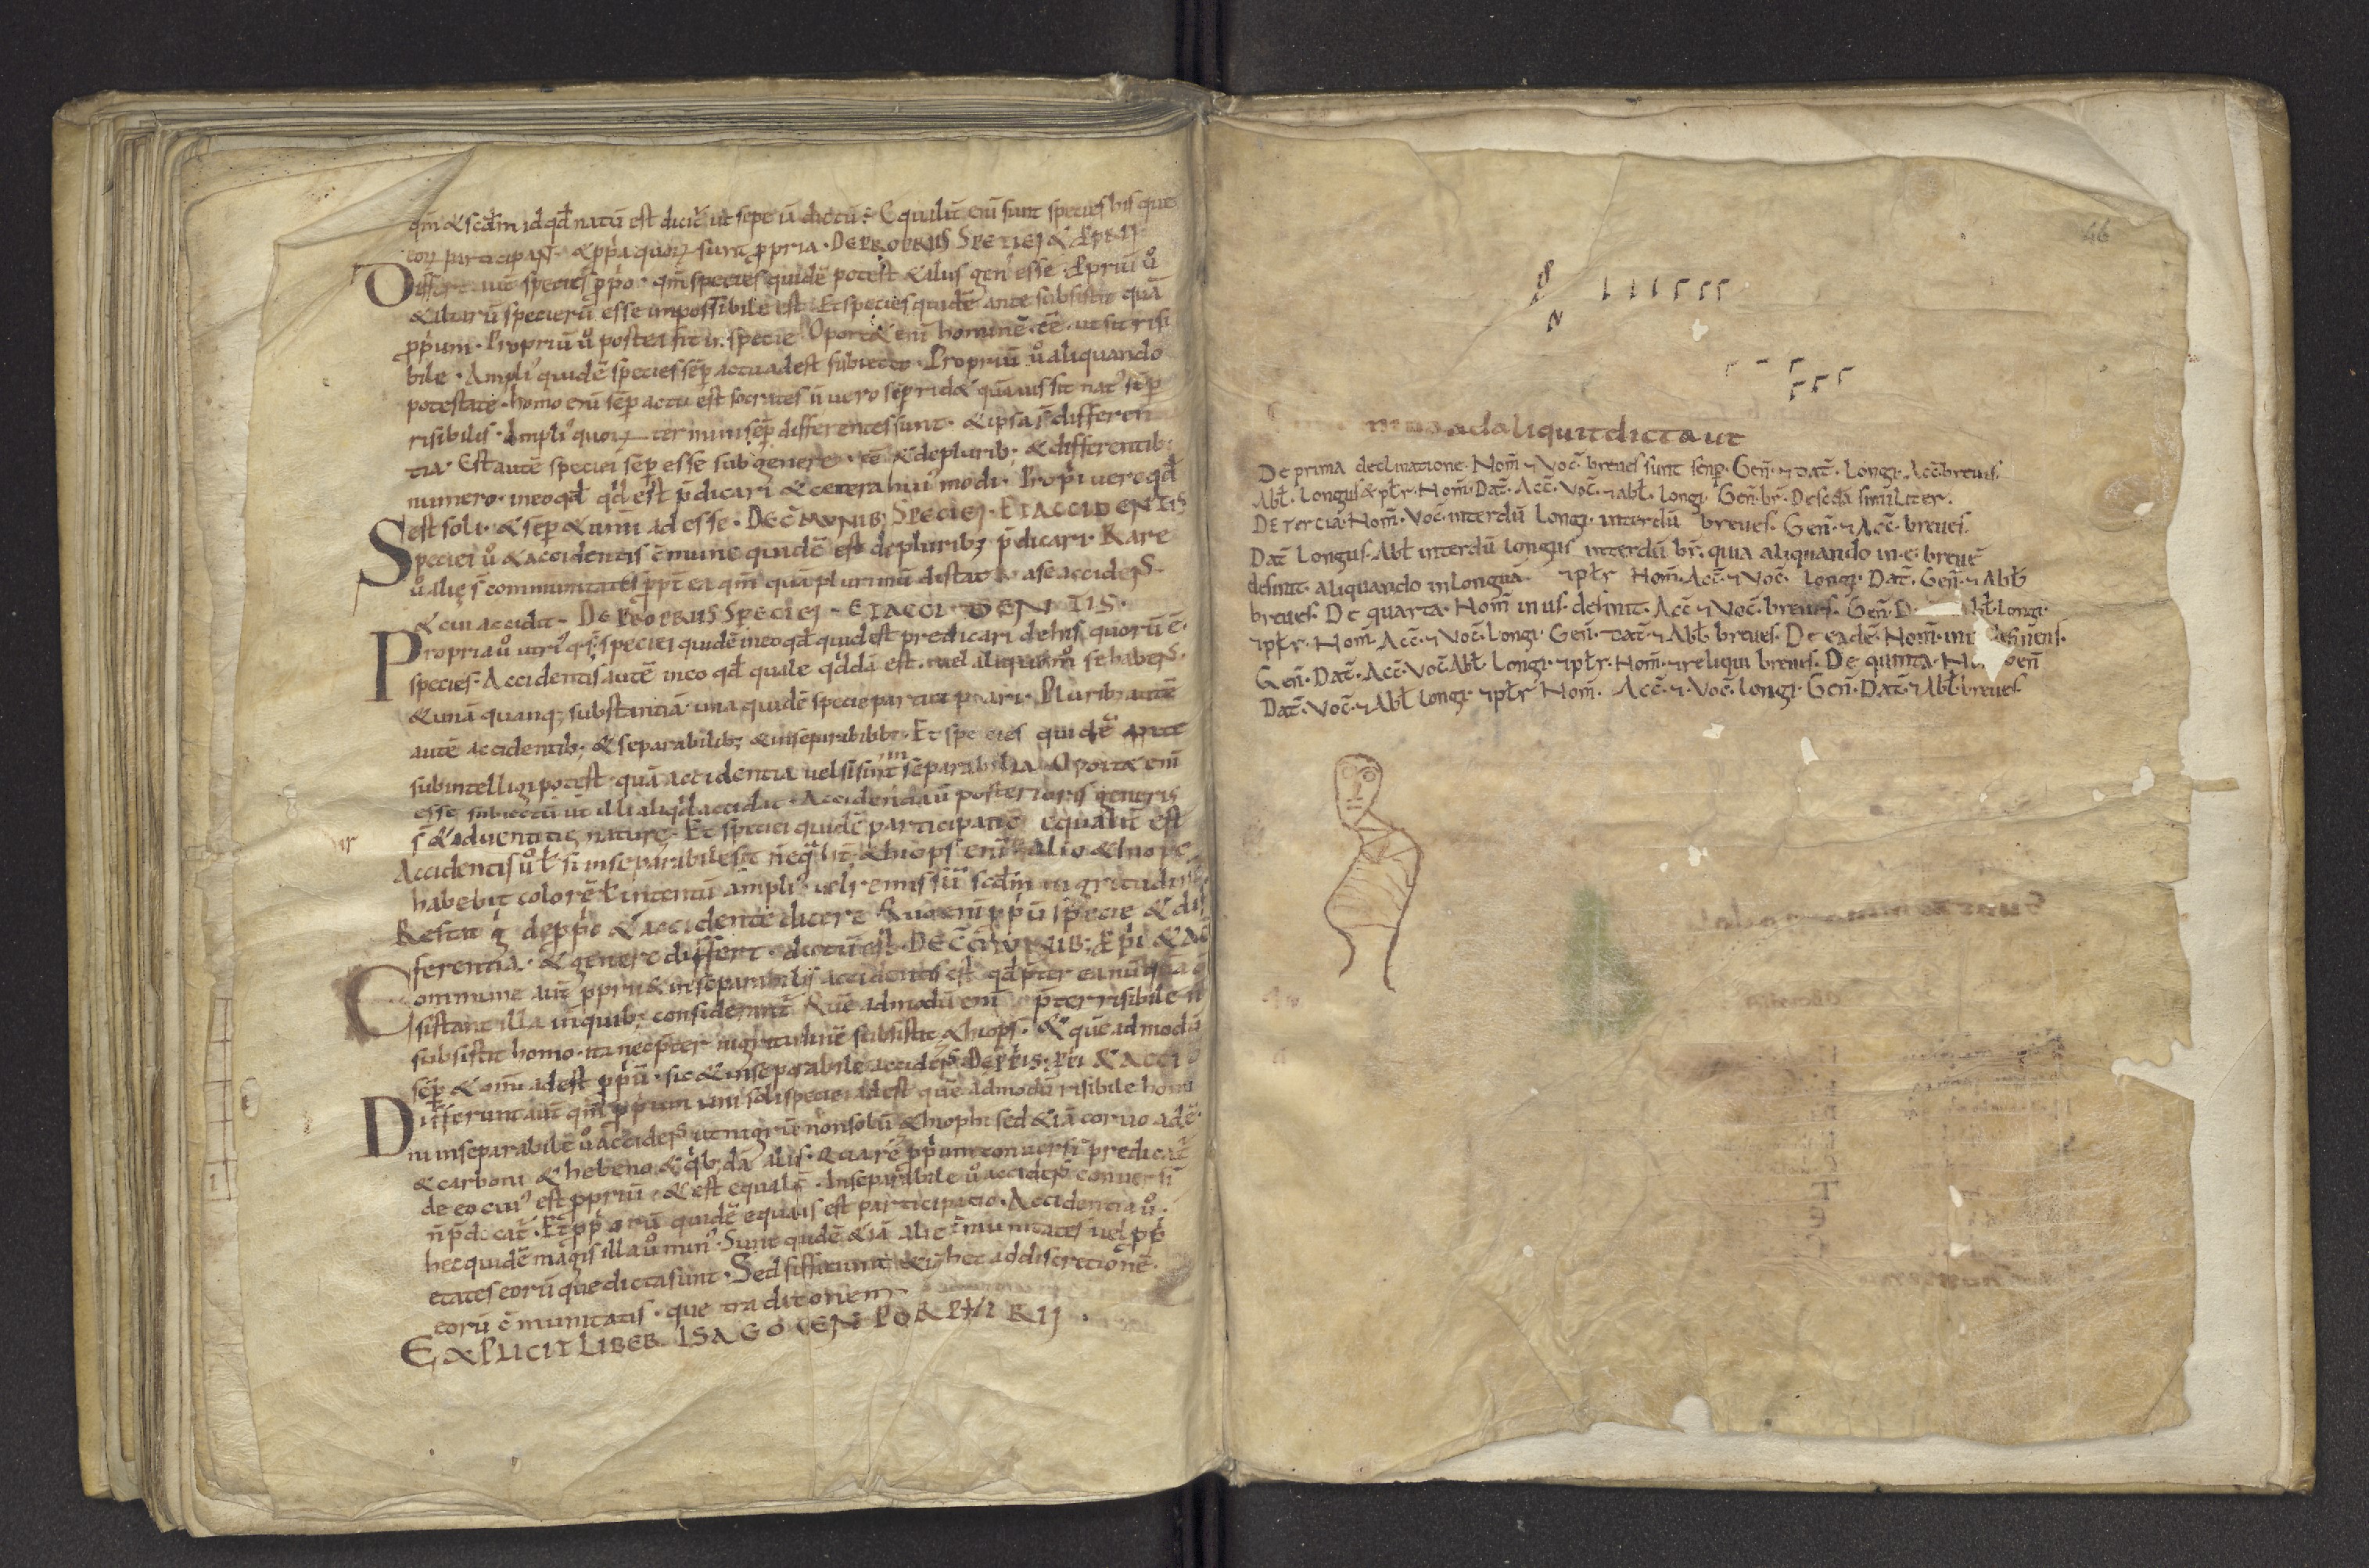 qm̄ & scdm̄ id qđ natū est dicit̄ ut sepe iā dictū ē Equalit̄ enī sunt species his que
eoꝝ participant & ꝓpria quoꝝ sunt ꝓpria · DE PROPRIIS SPECIEI & PPRII
Differt aut̄ species ꝓprio · qm̄ species quidē potest & alius gen' esse · ꝓpriū ů
& aliarū specierū esse impossibile est · Et species quidē ante subsistit quā
ꝓprium · Propriū ů postea fit in specie Oport& enī hominē eē · ut sit risi
bile · Ampli' quidē species sēp actu adest subiecto · Propriū ů aliquando
potestate · homo enī sēp actu est socrates ñ uero sēp rid& quāuis sit nat' sēp
risibilis · Ampli' quoꝝ termini sēp differentes sunt · & ipsa s̄ differen
tia · Est autē speciei sēp esse sub genere · & de plurib; & differentib;
numero · in eo qđ qđ est p̄dicari & cetera hui' modi · Proprii uero qđ
est soli · & sēp & omī ad esse · DE CŌMVNIB; SPECIEI · ET ACCIDENTIS
Speciei ů & accidentis cōmune quidē est de plurib; p̄dicari · Rare
ů alię s̄ communitates ꝓpt̄ ea qm̄ quā plurimū distat a se accidens
& cui accidit · DE PROPRIIS SPECIEI · ET ACCIDENTIS ·
Propria ů utri'q; s̄ speciei quidē in eo qđ quid est predicari de his quorū ē
species · Accidentis autē in eo qđ quale qđdā est · uel aliquo m̊ se habens ·
& unā quamq; substantiā · una quidē specie participari · Plurib; autē
autē accidentib; & separabilib; & inseparabilib; · Et species quidē ante
subintelligi potest · quā accidentia uel si sint inseparabilia Oport& enī
esse subiectū ut illi aliqđ accidat · Accidentia ů posterioris generis
s̄ & aduentitię nature · Et speciei quidē participatio equalit̄ est
Accidentis ů ł si inseparabile sit ñ equalit̄ &hiops enī alio &hiope
habebit colorē ł intentū ampli' uel remissiū scdm̄ nigritudinē
Restat g̊ de ꝓprio & accidente dicere Quo enī ꝓpriū specie & dif
ferentia · & genere differt · dictū est · DE CŌMVNIB; PPRI & AC
Commune aut̄ ꝓprii & inseparabilis accidentis est qđ p̄ter ea nunquā con
sistant illa in quib; considerant̄ Quē admodū enī p̄ter risibile ñ
subsistit homo · ita nec p̄ter nigritudinē subsistit &hiops · & quē admodū
sēp & omī adest ꝓpriū · sic & inseparabile accidens DE PPRIIS · PPRI & ACCI
Differunt aut̄ qm̄ ꝓprium uni soli speciei adest quē admodū risibile homi
ni inseparabile ů accidens ut nigrū non solū &hiopi sed &iā coruo adē
& carboni & hebeno & qb;dā aliis · Quare ꝓprium conuersim predicat̄
de eo cui' est ꝓpriū · & est equalit̄ · Inseparabile ů accidens conuersim
ñ p̄dicat̄ · Et ꝓpriorū quidē equalis est participatio · Accidentia ů ·
hec quidē magis illa ů min' · Sunt quidē &iā alie cōmunitates uel ꝓpri
etates eorū que dicta sunt · Sed sufficiunt & hec ad discretionē ·
eorū cōmunitatis · que traditionem
EXPLICIT LIBER ISAGOGEN PORPHIRII ·
46
N
ad aliquit dicta ut
De prima declinatione · Nom̄ & Voc̄ breues sunt semꝑ · Gen̄ · & Dat̄ · Longi · Acc̄ breuis ·
Abł · Longus & płr · Nom̄ · Dat̄ · Acc̄ · Voc̄ · & abł · longi · Gen̄ · br̄ · De scđa similiter ·
De tercia · Nom̄ · Voc̄ interdū longi · interdū breues · Gen̄ · & Acc̄ · breues ·
Dat̄ Longus · Abł interdū longus interdū br̄ · quia aliquando in · e · breuē
desinit · aliquando in longuā · & płr Nom̄ · Acc̄ · & Voc̄ · longi · Dat̄ · Gen̄ · & Abł
breues · De quarta · Nom̄ in us · desinit · Acc̄ & Voc̄ · breues · Gen̄ · D bł · longi ·
& płr · Nom̄ · Acc̄ · & Voc̄ · Longi · Gen̄ · Dat̄ · & Abł breues · De eadē · Nom̄ · in
Gen̄ · Dat̄ · Acc̄ · Voc̄ Abł · longi · & płr · Nom̄ · & reliqui breues · De quinta · N Gen̄
Dat̄ · Voc̄ · & Abł longi · & płr Nom̄ · Acc̄ · & · Voc̄ · longi · Gen̄ · Dat̄ · & Abł · breues ·